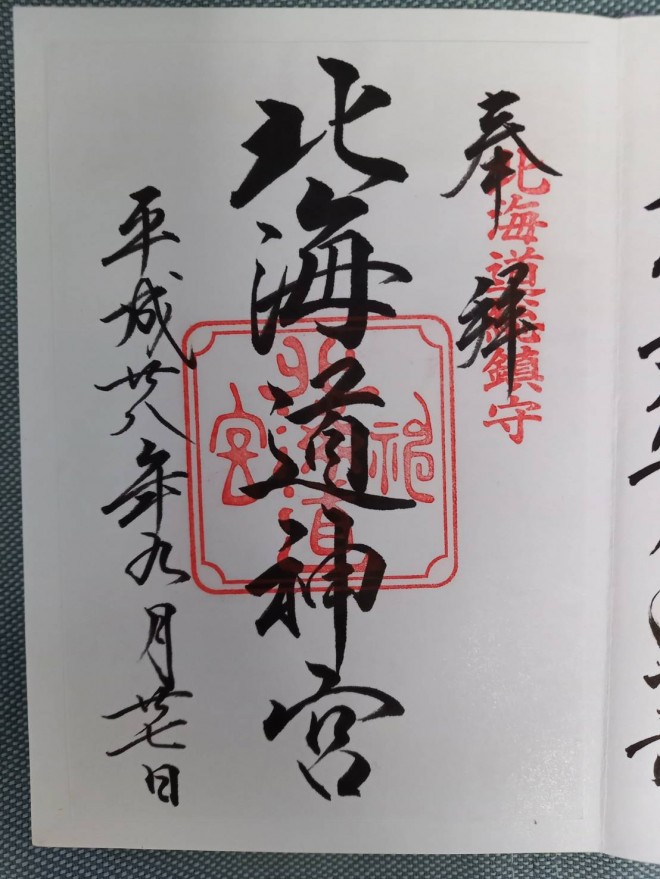 奉拝
北海道総鎮守
北海道神宮
北海道神宮
平成廿八年九月廿七日